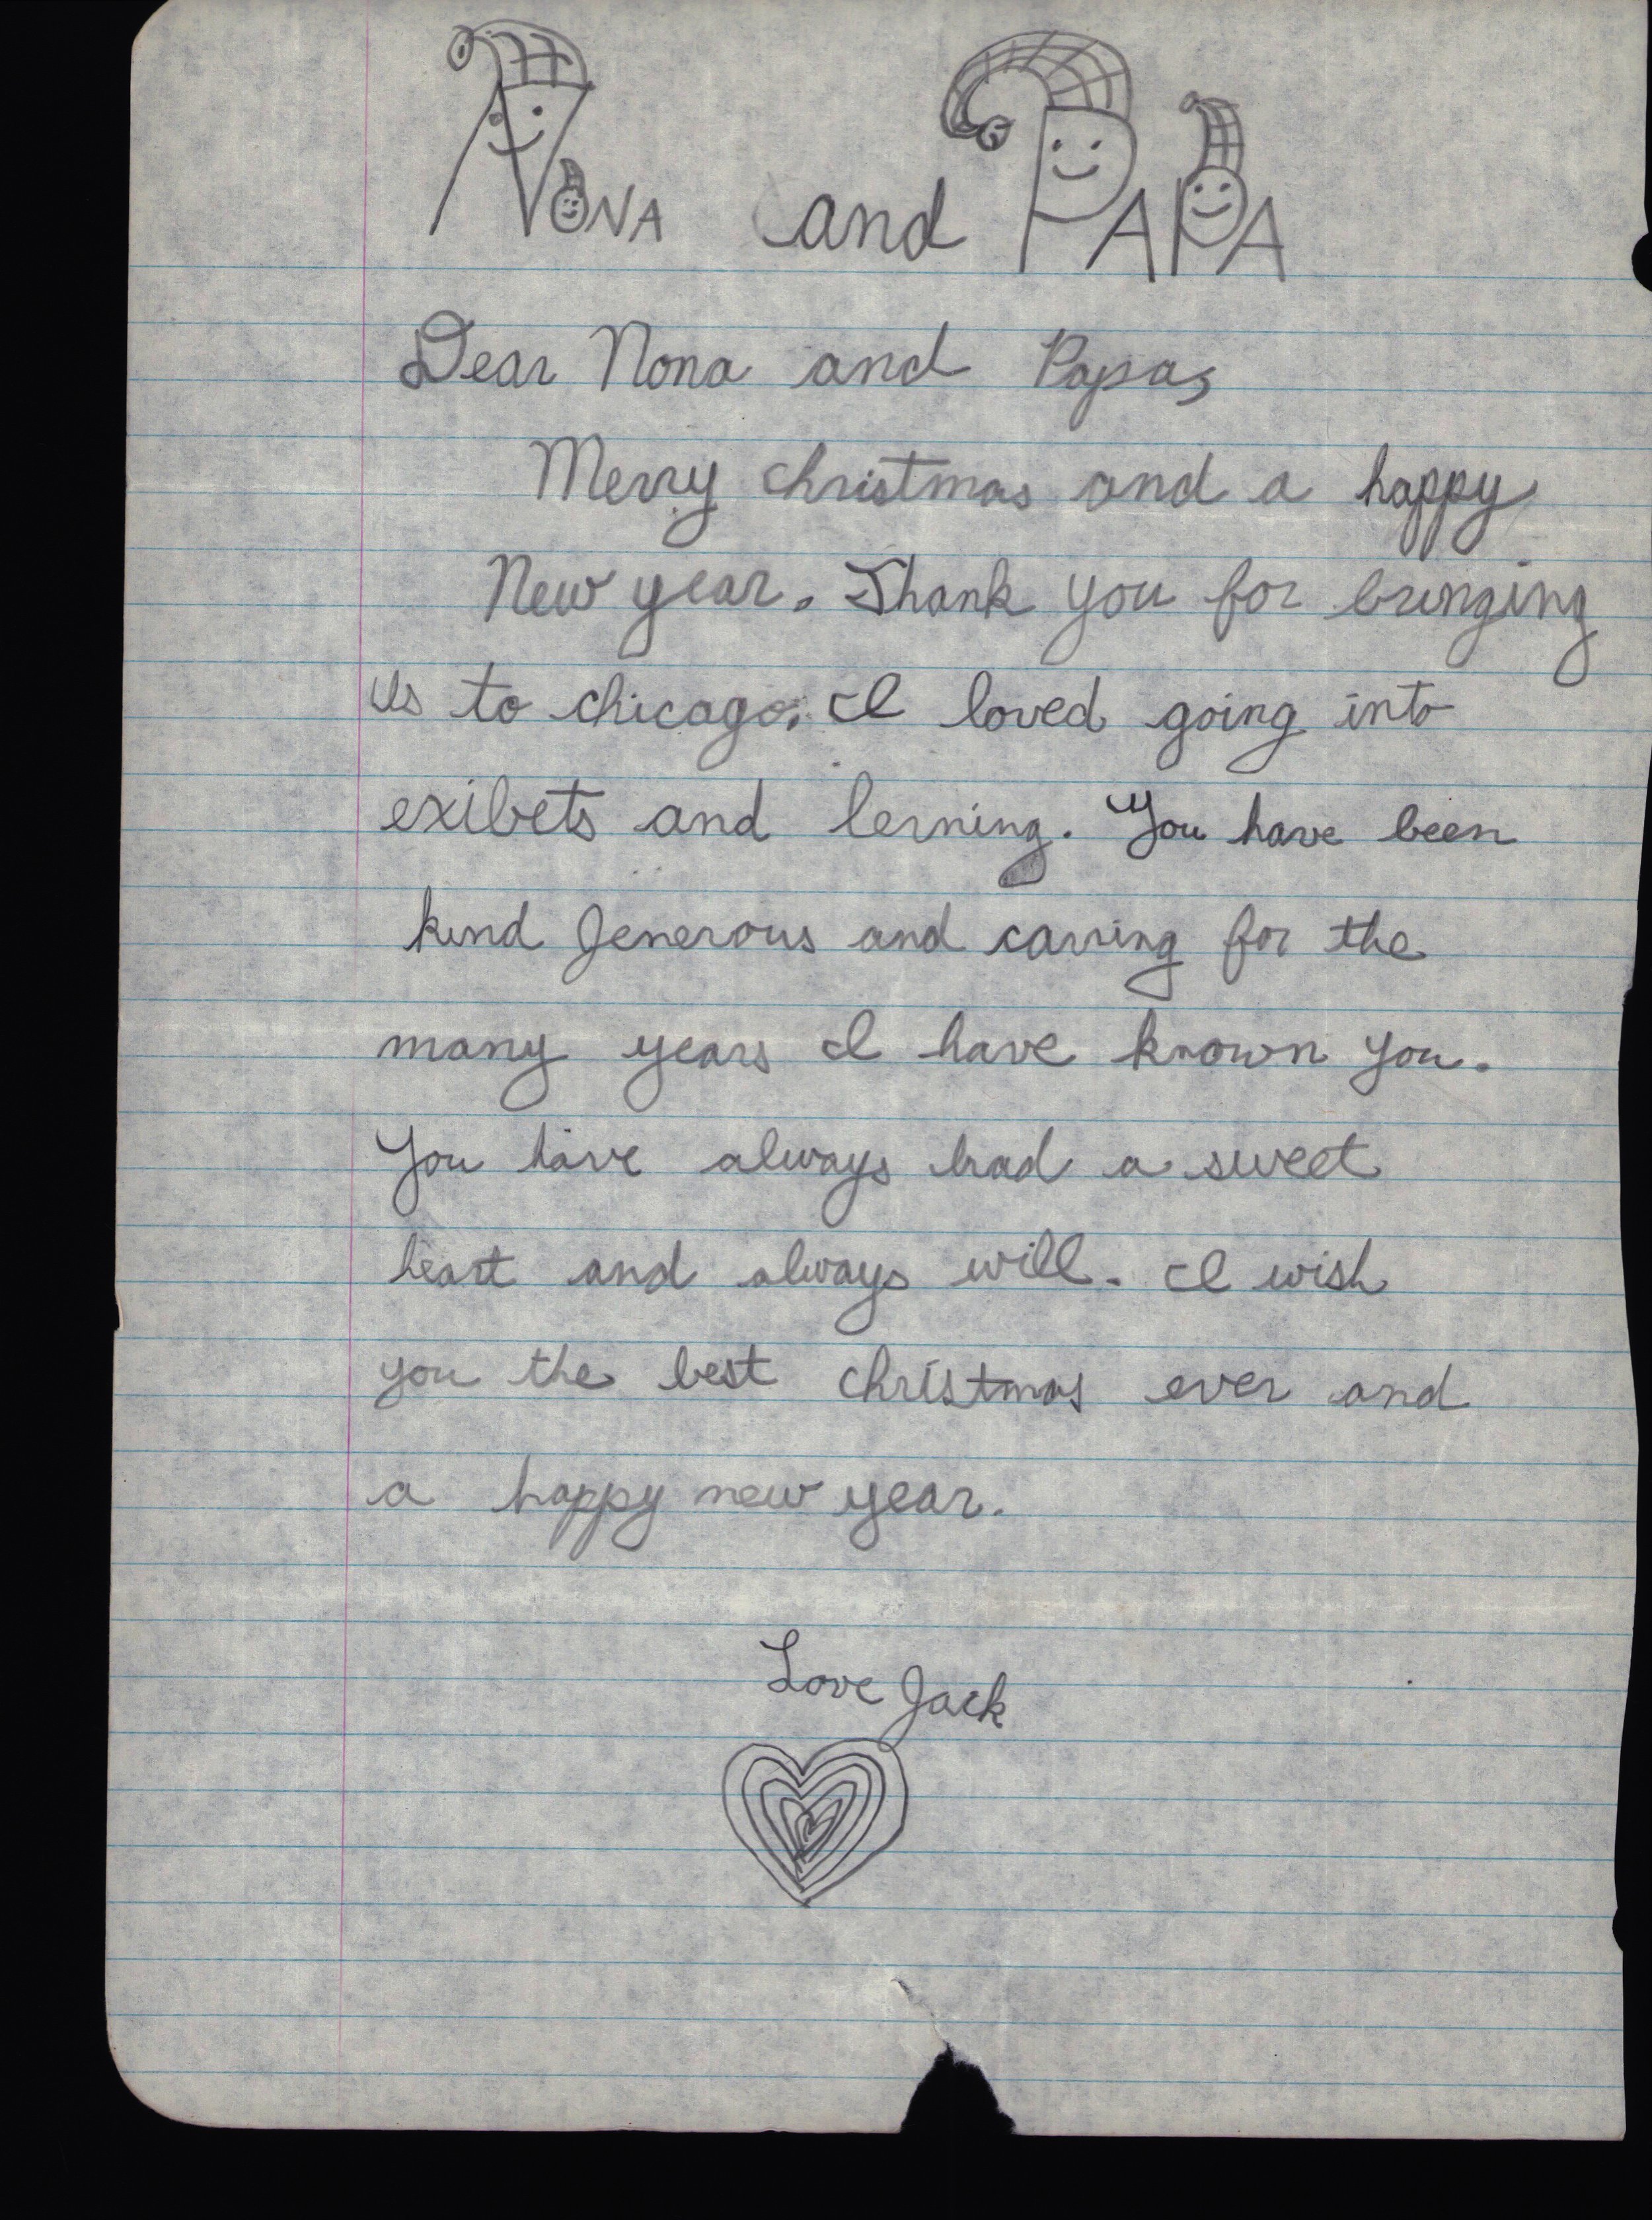 NONA and PAPA
Dear Nona and Papa,
Merry christmas and a happy
New year. Thank you for bringing
us to chicago. I loved going into
exibets and lerning. You have been
kind generous and carring for the
many years I have known you.
You have always had a sweet
heart and always will. I wish
you the best christmas ever and
a happy new year.
Love Jack